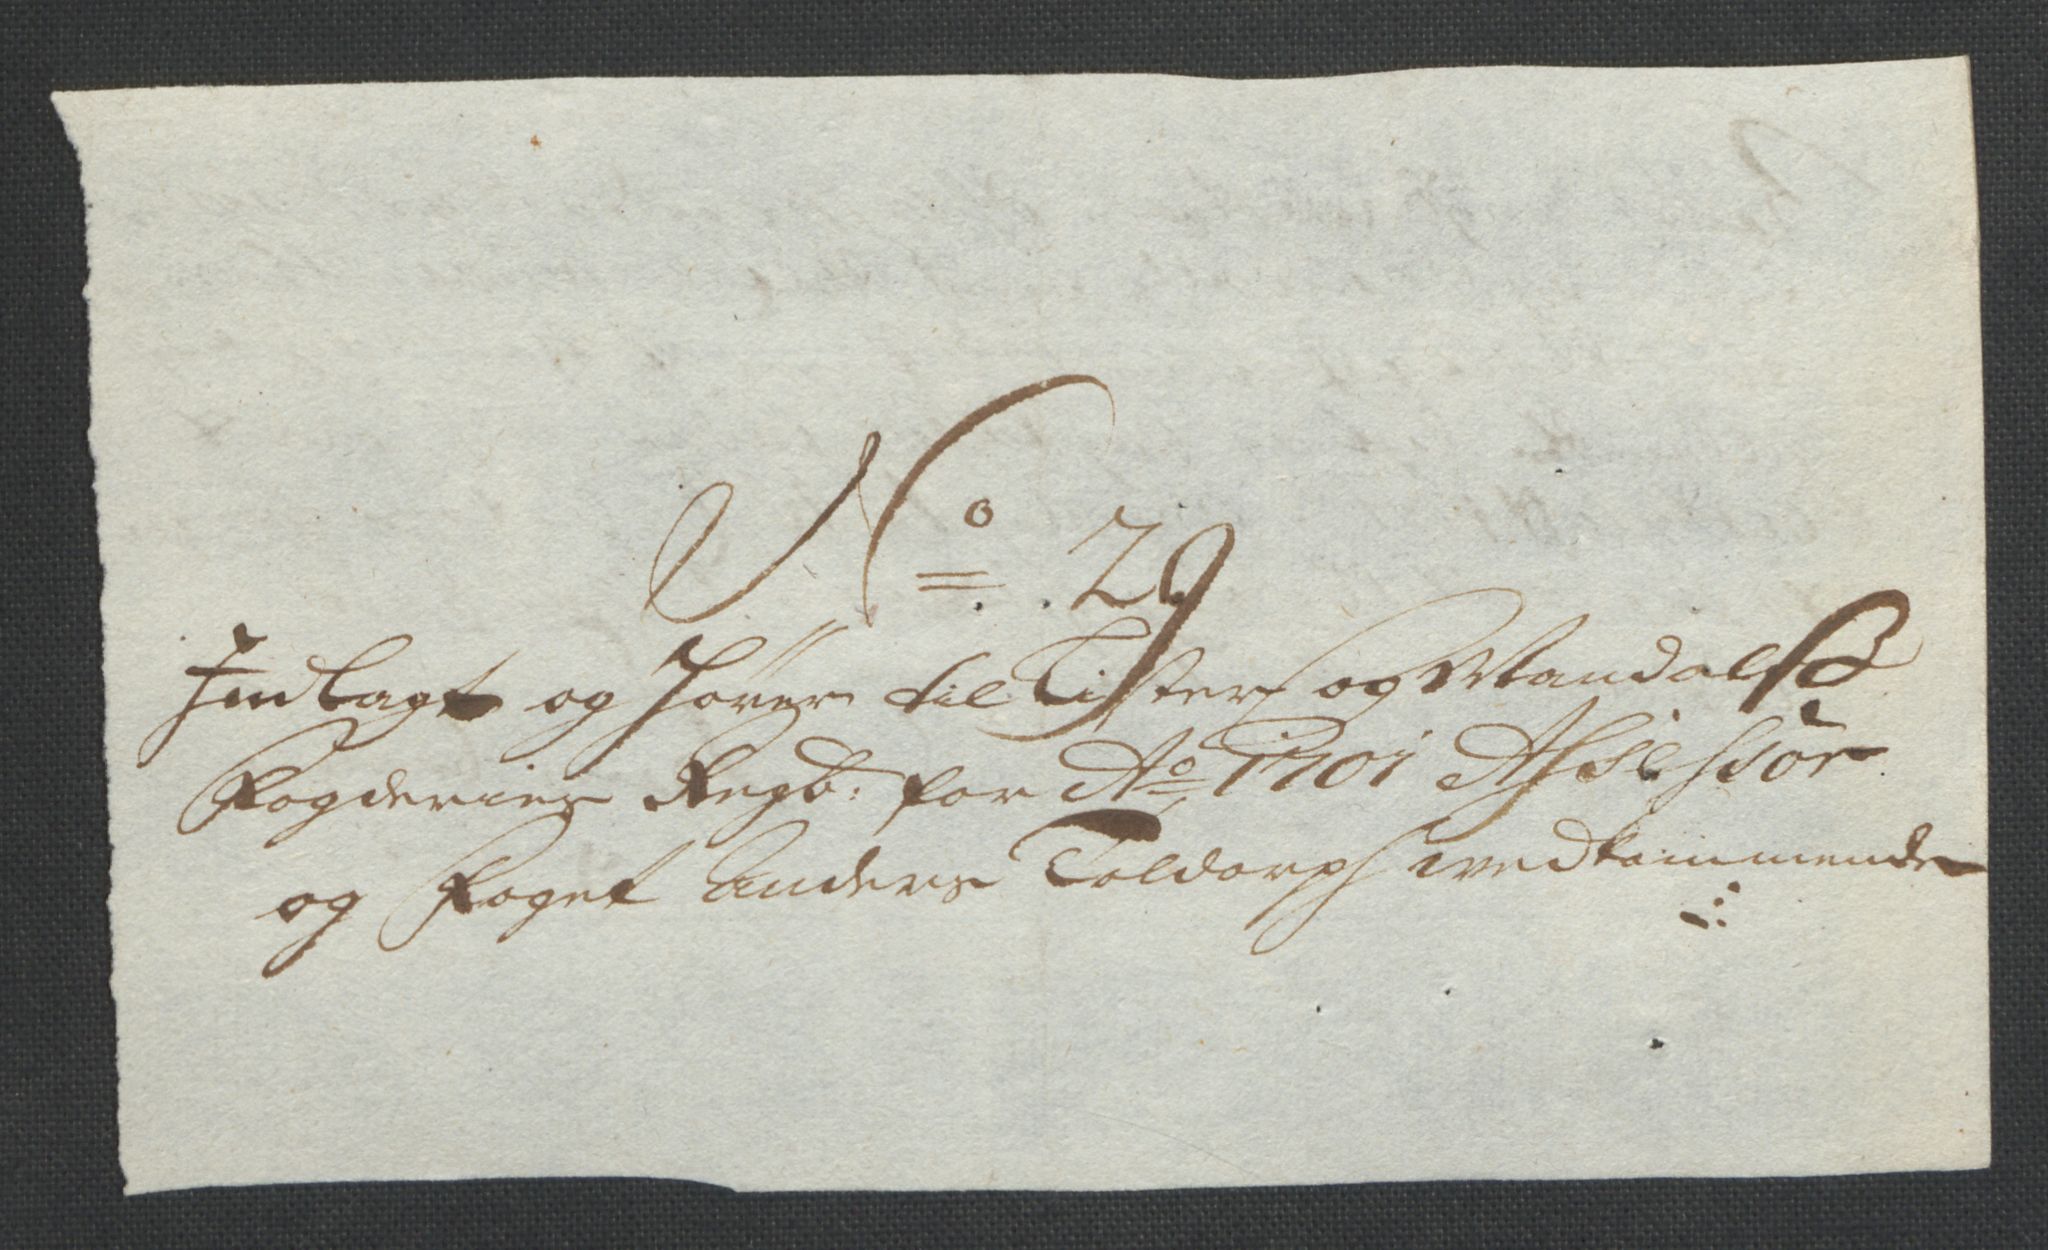 No 29
Indlagt og hører til Listers og Mandals
Fogderies Regb: for Ao 1701 Assessor
og Foget Anders Toldorph vedkommende